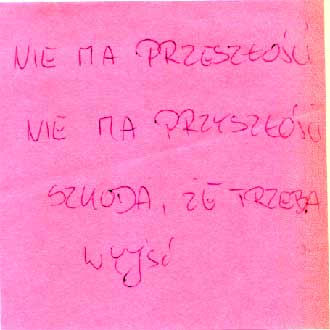 NIE MA PRZESZŁOŚCI
NIE MA PRZYSZŁOŚCI
SZKODA, ŻE TRZEBA
WYJŚĆ